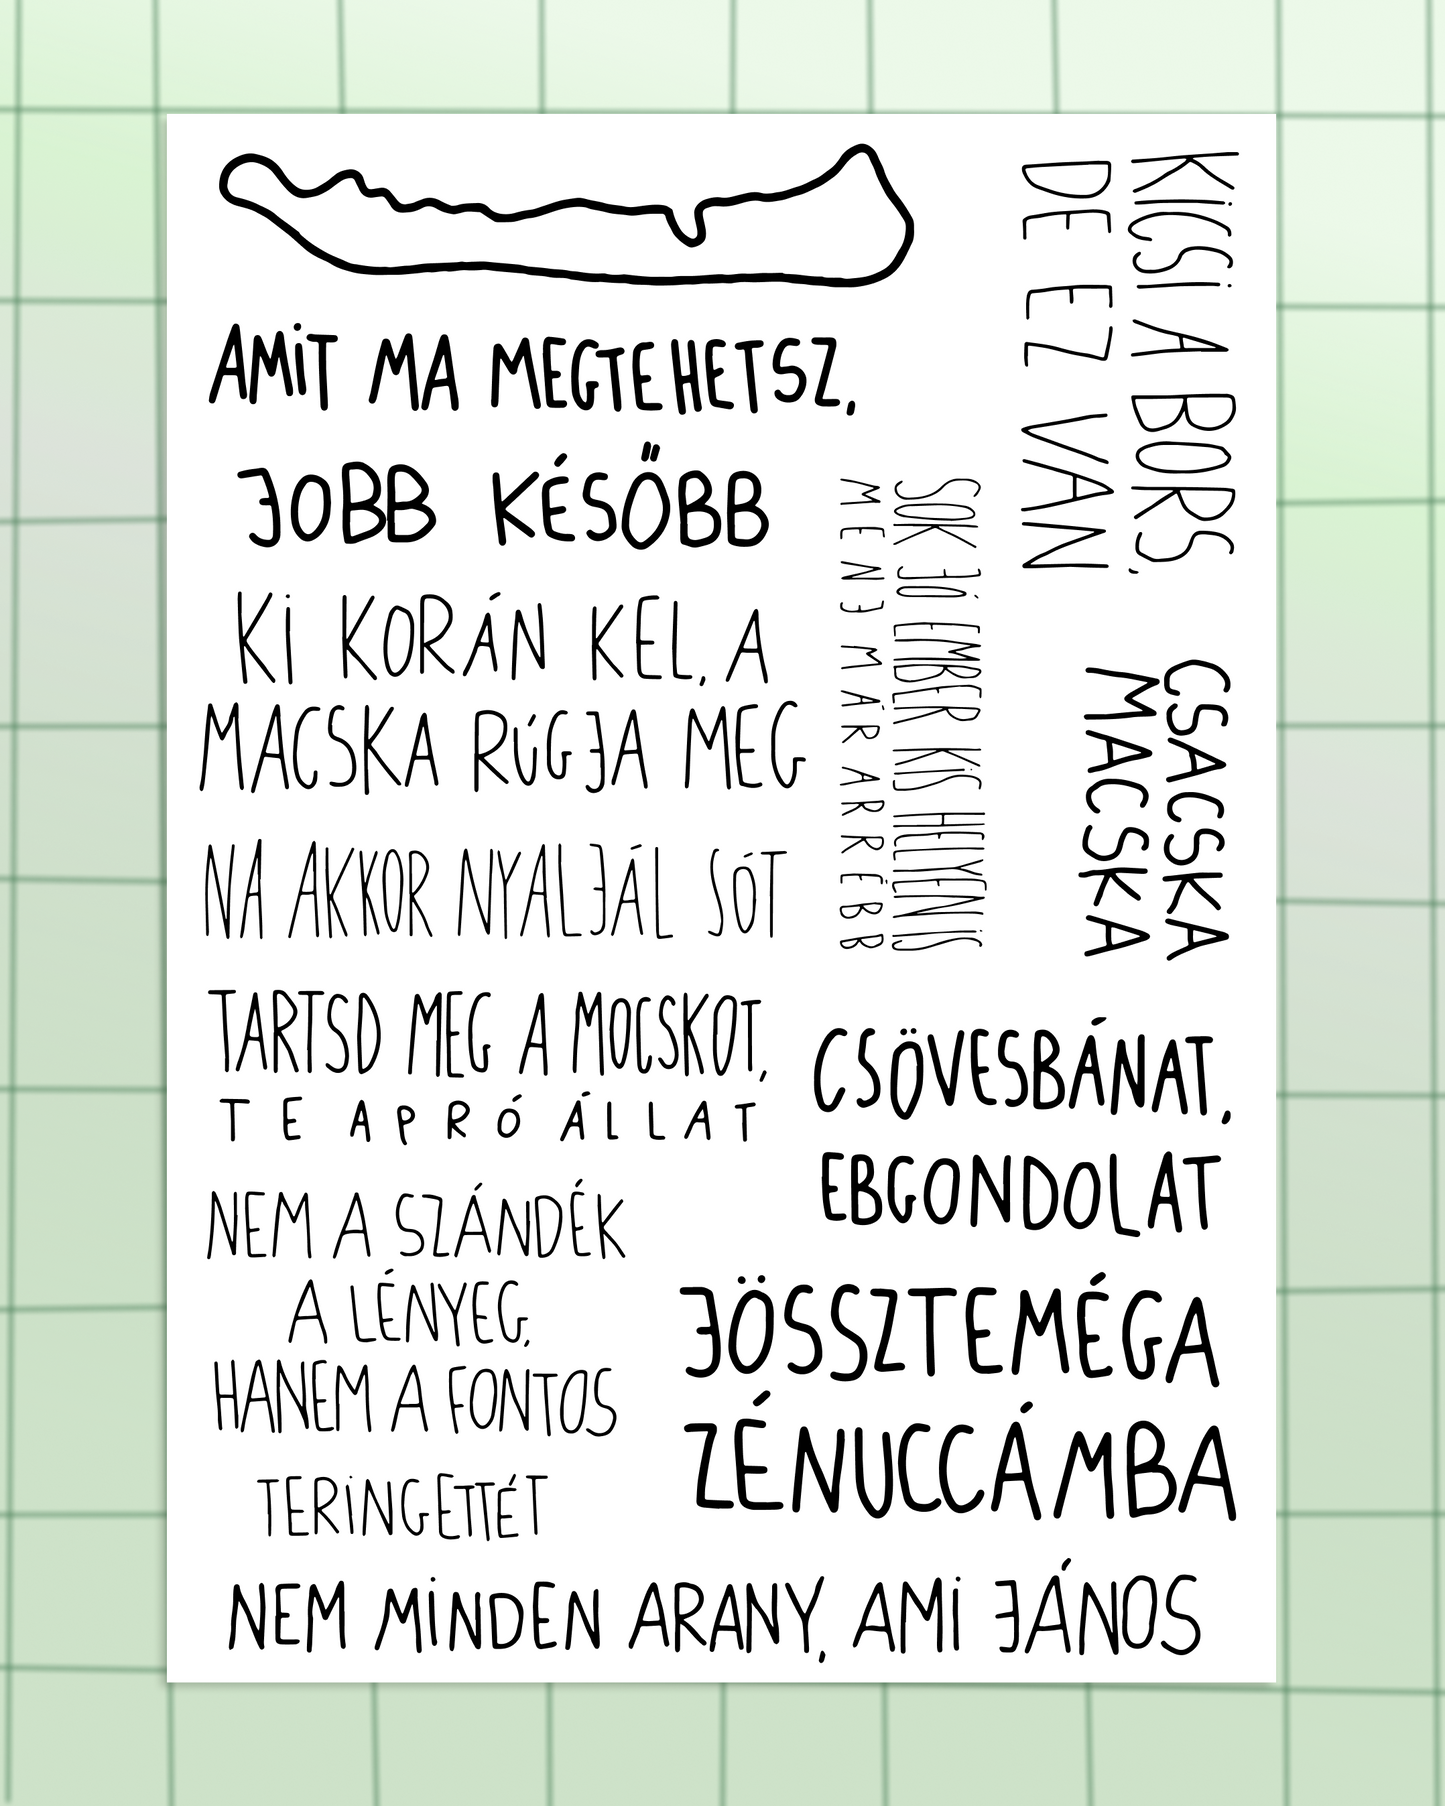 AMIT MA MEGTEHETSZ,
JOBB KÉSŐBB
KI KORÁN KEL, A
MACSKA RÚGJA MEG
NA AKKOR NYALJÁL SÓT
TARTSD MEG A MOCSKOT,
TE APRÓ ÁLLAT
NEM A SZÁNDÉK
A LÉNYEG,
HANEM A FONTOS
TERINGETTÉT
KICSI A BORS,
DE EZ VAN
SOK JÓ EMBER KIS HELYEN IS
MENJ MÁR ARRÉBB
CSACSKA
MACSKA
CSÖVESBÁNAT,
EBGONDOLAT
JÖSSZTEMÉGA
ZÉNUCCÁMBA
NEM MINDEN ARANY, AMI JÁNOS